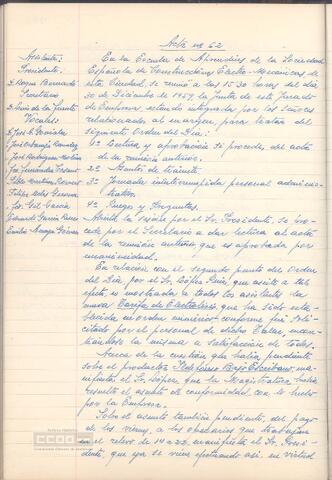 Acta nº 62
Asistentes:
Presidente:
D. Roque Bernardo
Secretario
D. Luis de la Fuente
Vocales:
D. José L. González
José Rodríguez Molina
José Fernández
Felipe
José Gil García
Eduardo García
Emilio Amaya Gómez
En la Escuela de Aprendices de la Sociedad
Española de Construcciones Electro-Mecánicas de
esta Ciudad, se reunió a las 15'30 horas del día
30 de Diciembre de 1959, la Junta de este Jurado
de Empresa, estando integrada por los señores
relacionados al margen, para tratar del
siguiente Orden del Día:
1º Lectura y aprobación si procede, del acta
de la reunión anterior.
2º Asuntos de trámite
3º Jornada interrumpida personal administrativo
4º Ruegos y Preguntas.
Abierta la sesión por el Sr. Presidente, se procede
por el Secretario a dar lectura al acta
de la reunión anterior que es aprobada por
unanimidad.
En relación con el segundo punto del Orden
del Día, por el Sr. López, que asiste a tal
efecto, es mostrada a todos los asistentes la
nueva Tarifa de
conforme fue solicitado
por el personal de dicho Taller
la misma a satisfacción de todos.
Acerca de la cuestión que había pendiente
sobre el productor Ildefonso Escribano, manifiesta
el Sr. López que la Magistratura había
resuelto el asunto de conformidad con lo hecho
por la Empresa.
Sobre el asunto también pendiente, del pago
de los a los operarios que trabajan
en el relevo de 14 a 22, manifiesta el Sr. Presidente,
que ya se viene efectuando así en virtud
CCOO